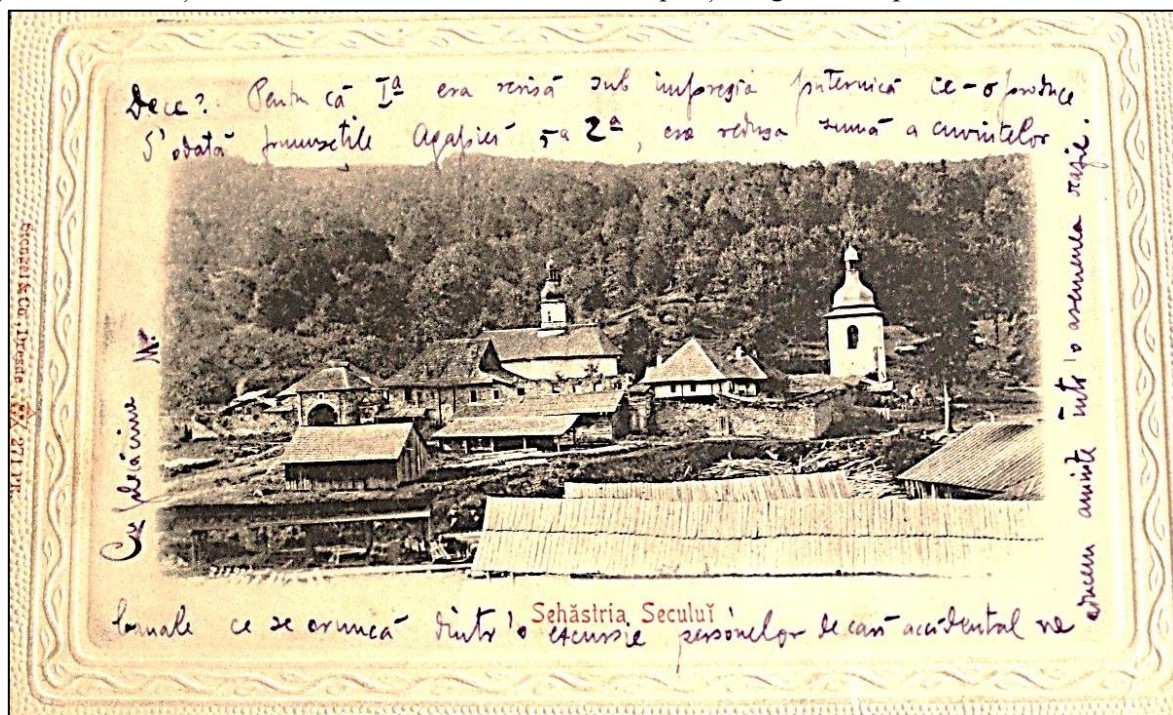 Dece? Pentru că Iª era scrisă sub impresia puternică ce-o produce
S'odată frumusețile Agapiei, ța 2ª, era redusa sumă a cuvintelor
banale ce se aruncă dintr'o excursie persónelor de cari accidental ne
aducem aminte într'o asemenea
Cu plăcăciune
Sehăstria Seculuĭ
Stengel & Co., Dresde